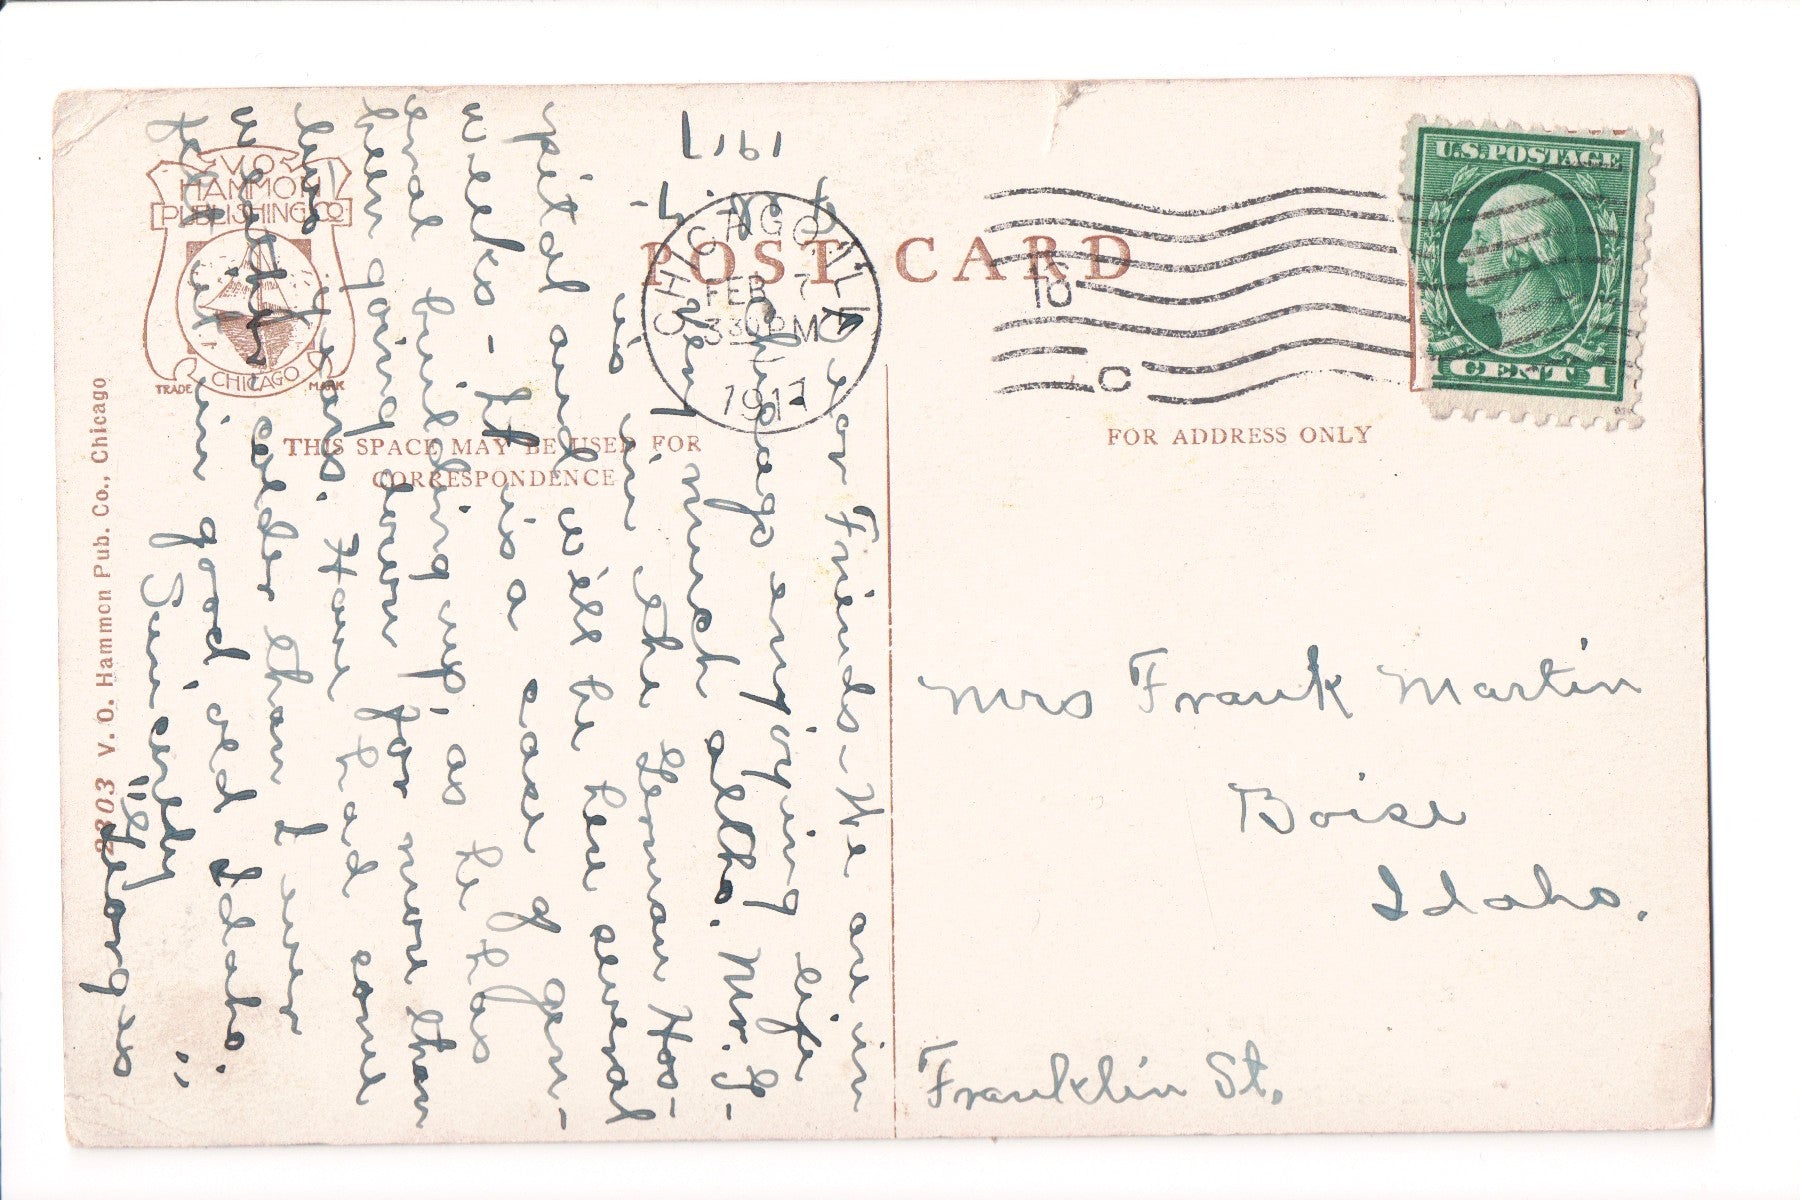 POST CARD
U.S. POSTAGE
1 CENT 1
CHICAGO, ILL.
FEB 7
330 PM
1917
10
C
V.O.
HAMMON
PUBLISHING CO
CHICAGO
TRADE MARK
THIS SPACE MAY BE USED FOR
CORRESPONDENCE
FOR ADDRESS ONLY
2303 V. O. Hammon Pub. Co., Chicago
1917
Dear Friends - We are in
Chicago enjoying life
very much altho. Mr. G-
is in the German Hos-
pital and will be here several
weeks - It is a case of gen-
eral building up - as he has
been going down for more than
two years. Have had some
weather colder than I ever
felt in good old Idaho.
Sincerely
"Georges"
Mrs Frank Martin
Boise
Idaho.
Franklin St.